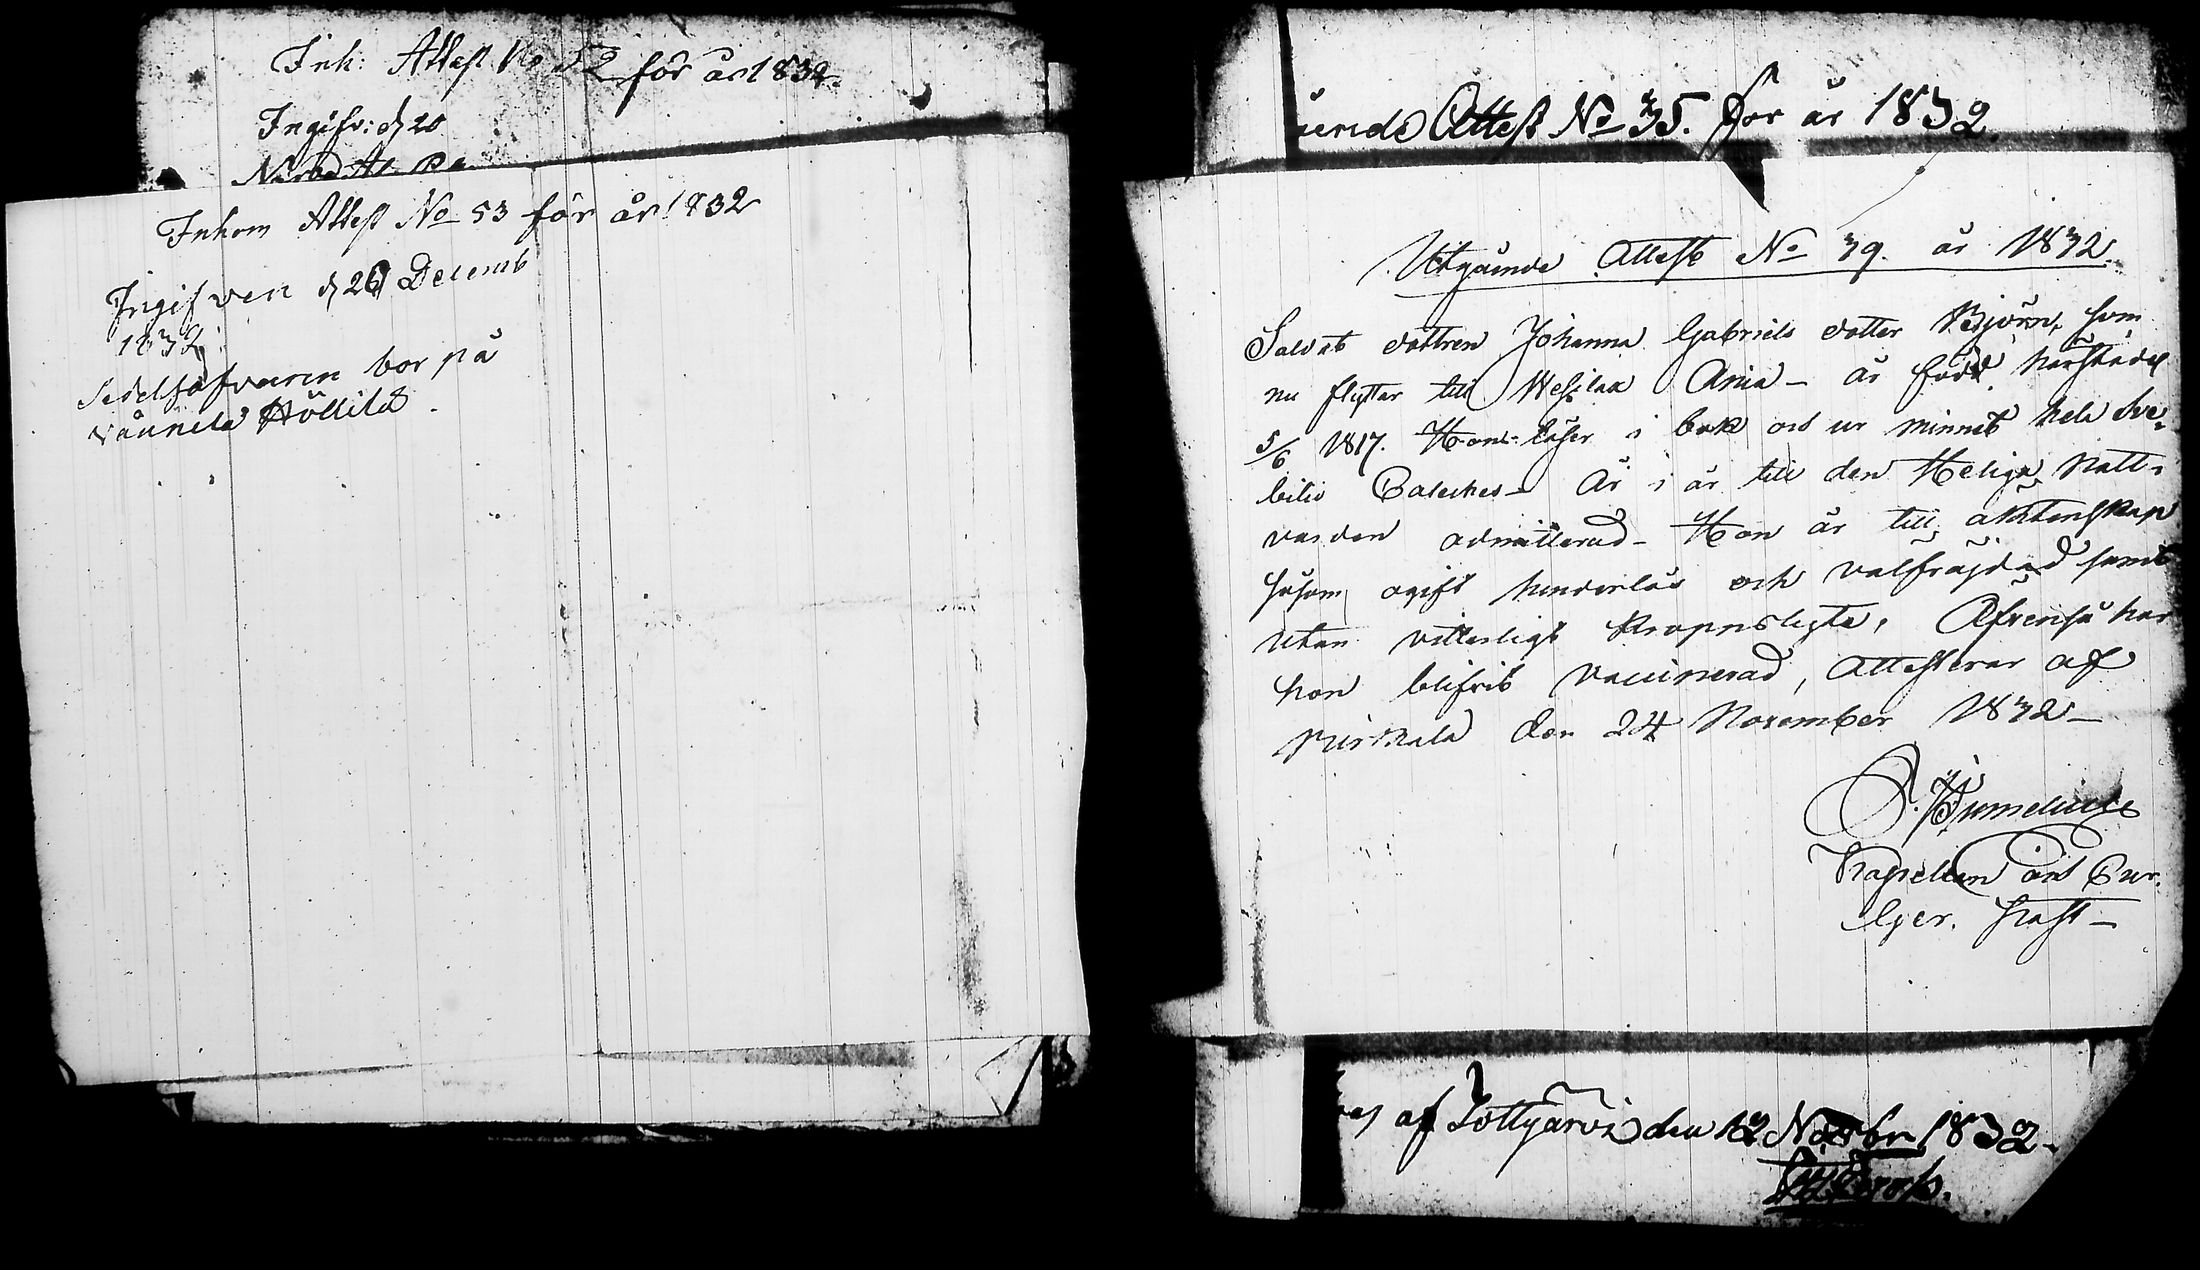 Ink: Attest No 52 för år 1832.
Ingifv: d 20
Inkom Attest No 53 för år 1832
Ingifven d 26 Decemb
1832
Sedelhafvaren bor på
Höllilä
Attest No 35. för år 1832
Utgående Attest No 39. år 1832.
Soldats dottren Johanna Gabriels dotter Björn, som
nu flyttar till Wesilax Ania – är född härstädes
5/6 1817. Hon läser i bok och ur minnet hela Sve-
bilii Cateches – Är i år till den Heliga Natt-
varden admitterad – Hon är till äktenskap
såsom ogift hinderlös och välfräjdad samt
utan vetterligt kroppslyte, Äfvenså har
hon blifvit vaccinerad, attesterar af
Pirkkala den 24 November 1832 –
Kapellan och Cur.
Ger. Past –
af Tottijärvi den 12 Novbr 1832.